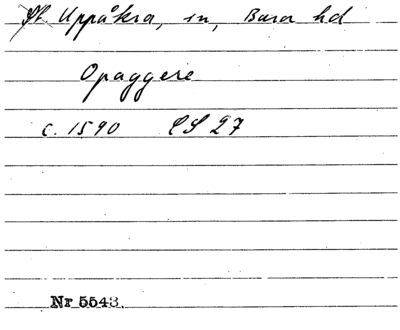 St Uppåkra, sn, Bara hd
Opaggere
c. 1590 LS 27
Nr 5543.